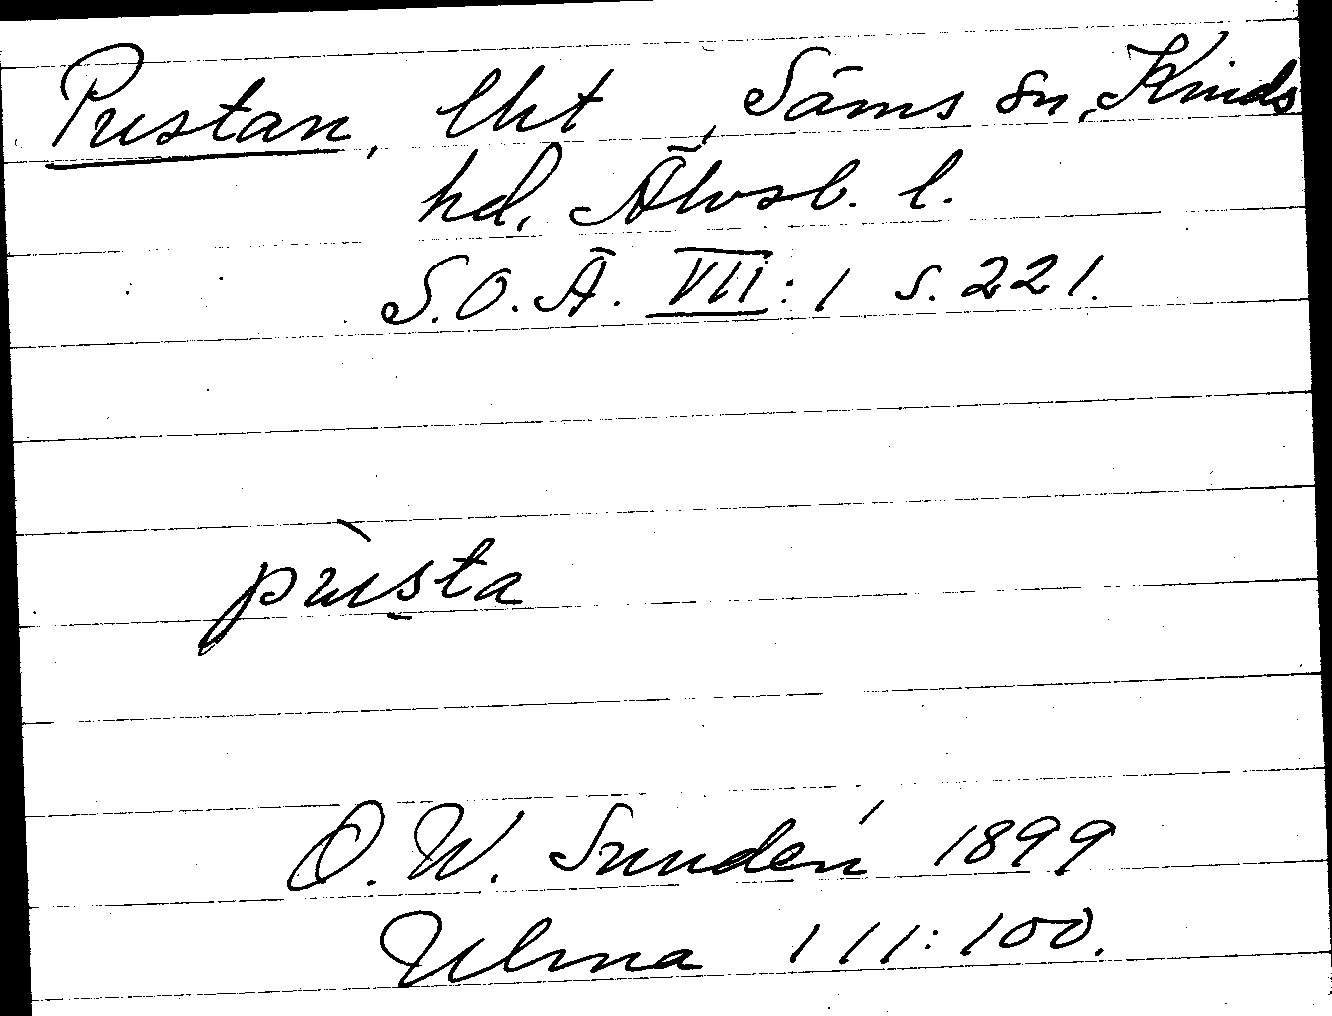 Pustan, lht , Säms sn, Kinds
hd, Älvsb. l.
S.O.Ä. VII: 1 s. 221.
pùs̱ta
O. W. Sundén 1899
Ulma 111:100.